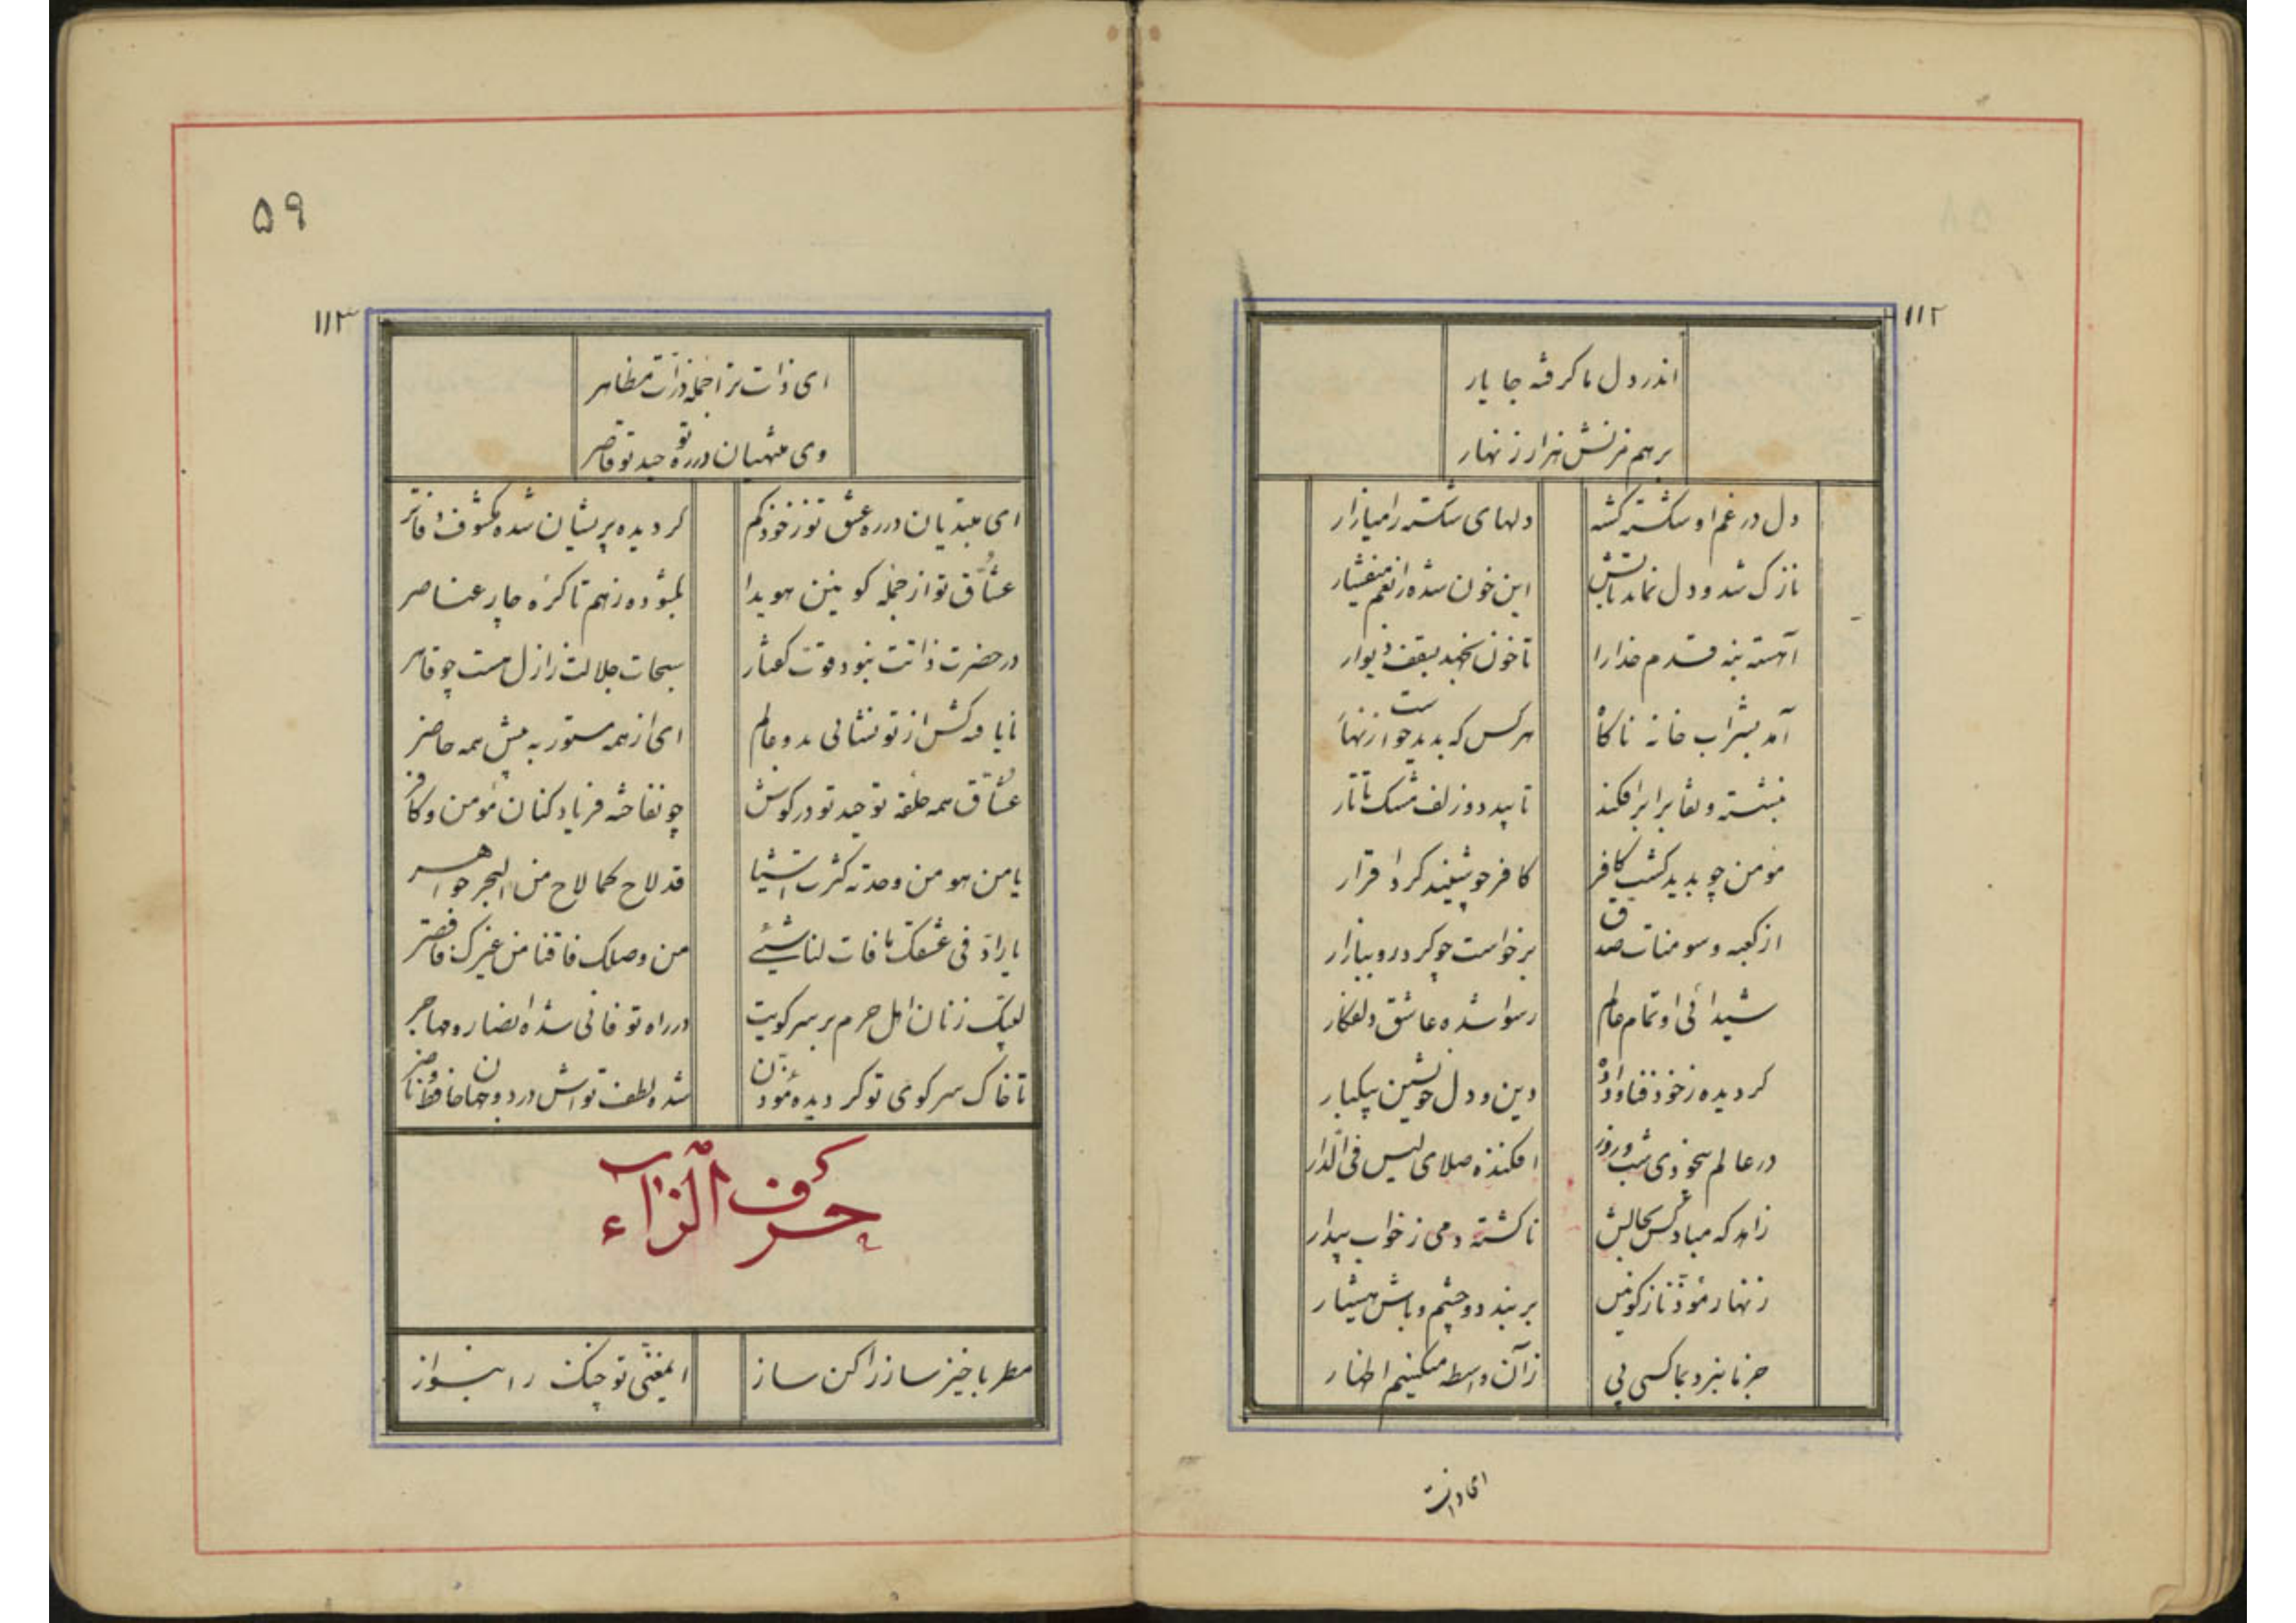 ۱۱۲
اندر دل ما گرفته جا یار
برهم مزنش هزار زنهار
دل در غم او شکسته گشته دلهای شکسته را میازار
نازک شد و دل نماند تابش این خون شده را بغم میفشار
آهسته بنه قدم خدارا تا خون نجهد بسقف و دیوار
آمد بشراب خانه ناگاه هرکس که بدید خواست زنهار
بنشسته و نقاب برافکند تابید دو زلف مشک تاتار
مؤمن چو بدید گشت کافر کافر چو شنید کرد اقرار
از کعبه و سومنات صدق برخواست چو کرد رو ببازار
شیدائی او تمام عالم رسوا شده عاشق دلفکار
گردیده ز خود فنا و داده دین و دل خویشتن بیکبار
در عالم بیخودی شب و روز افکنده صلای لیس فی الدار
زاهد که مباد کس بحالش ناگشته دمی ز خواب بیدار
زنهار مؤذنا ز کونین بربند دو چشم و باش هشیار
جز ما نبرد بما کسی پی زآن واسطه میکنیم اظهار
ای ذات
۵۹
۱۱۳
ای ذات ترا جمله ذرات مظاهر
وی منتهیان در ره توحید تو قاصر
ای مبتدیان در ره عشق تو ز خود گم گردیده پریشان شده مکشوف دفاتر
عشاق تو از جمله کونین هویدا بگشوده ز هم تا گره چار عناصر
در حضرت ذاتت نبود قوت گفتار سبحات جلالت ز ازل هست چو قاهر
نایافته کَس از تو نشانی بدو عالم ای از همه مستور به پیش همه حاضر
عشاق همه حلقه توحید تو در گوش چو نفاخته فریاد کنان مؤمن و کافر
یا من هو من وحدته کثرت اشیا قد لاح کما لاح من البحر جواهر
یا رادّ فی عشقک مافات لنا شیئ من وصلک فاقنا من غیرک فاقصر
لبیک زنان اهل حرم بر سر کویت در راه تو فانی شده انصار و مهاجر
تا خاک سر کوی تو گردیده مؤذن شد لطف تواش در دو جهان حافظ و ناصر
حرف الزاء
مطربا خیز ساز را کن ساز ای مغنی تو چنگ را بنواز